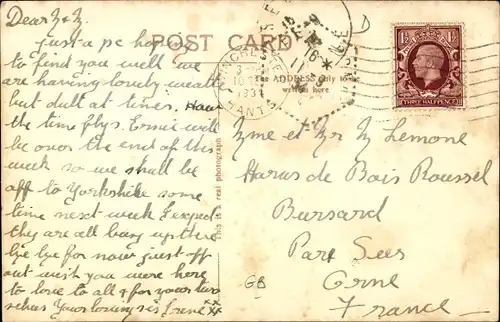 Dear Z & Z.
Just a pc hoping
to find you well we
are having lovely weathe
but dull at times. Haw
the time flys. Ernie will
be over the end of this
week so we shall be
off to Yorkshire some
time next week I expect
they are all busy up there
bye bye for now just off
out wish you were here
to love to all & for your two
selves Your loving sis Irene xx
POST CARD
The ADDRESS only to be
written here
This is a real photograph
HANTS
THREE HALFPENCE
Zme et Zr Z Lemone
Haras de Bois Roussel
Bursard
Par Sees
Orne
France
GB
D